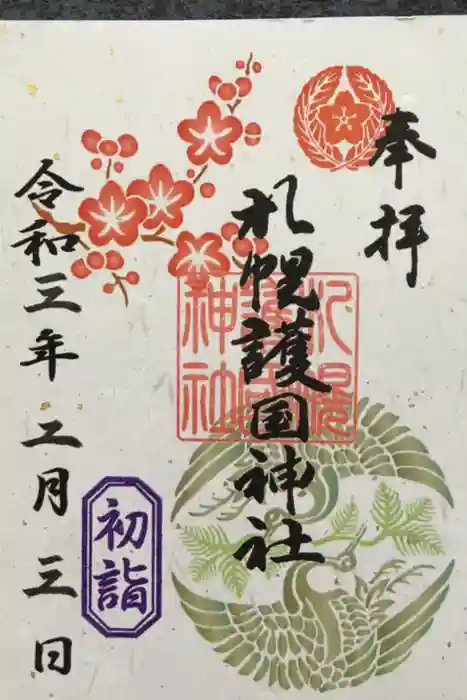 奉拝
札幌護国神社
令和三年二月三日
初詣
札幌護国神社